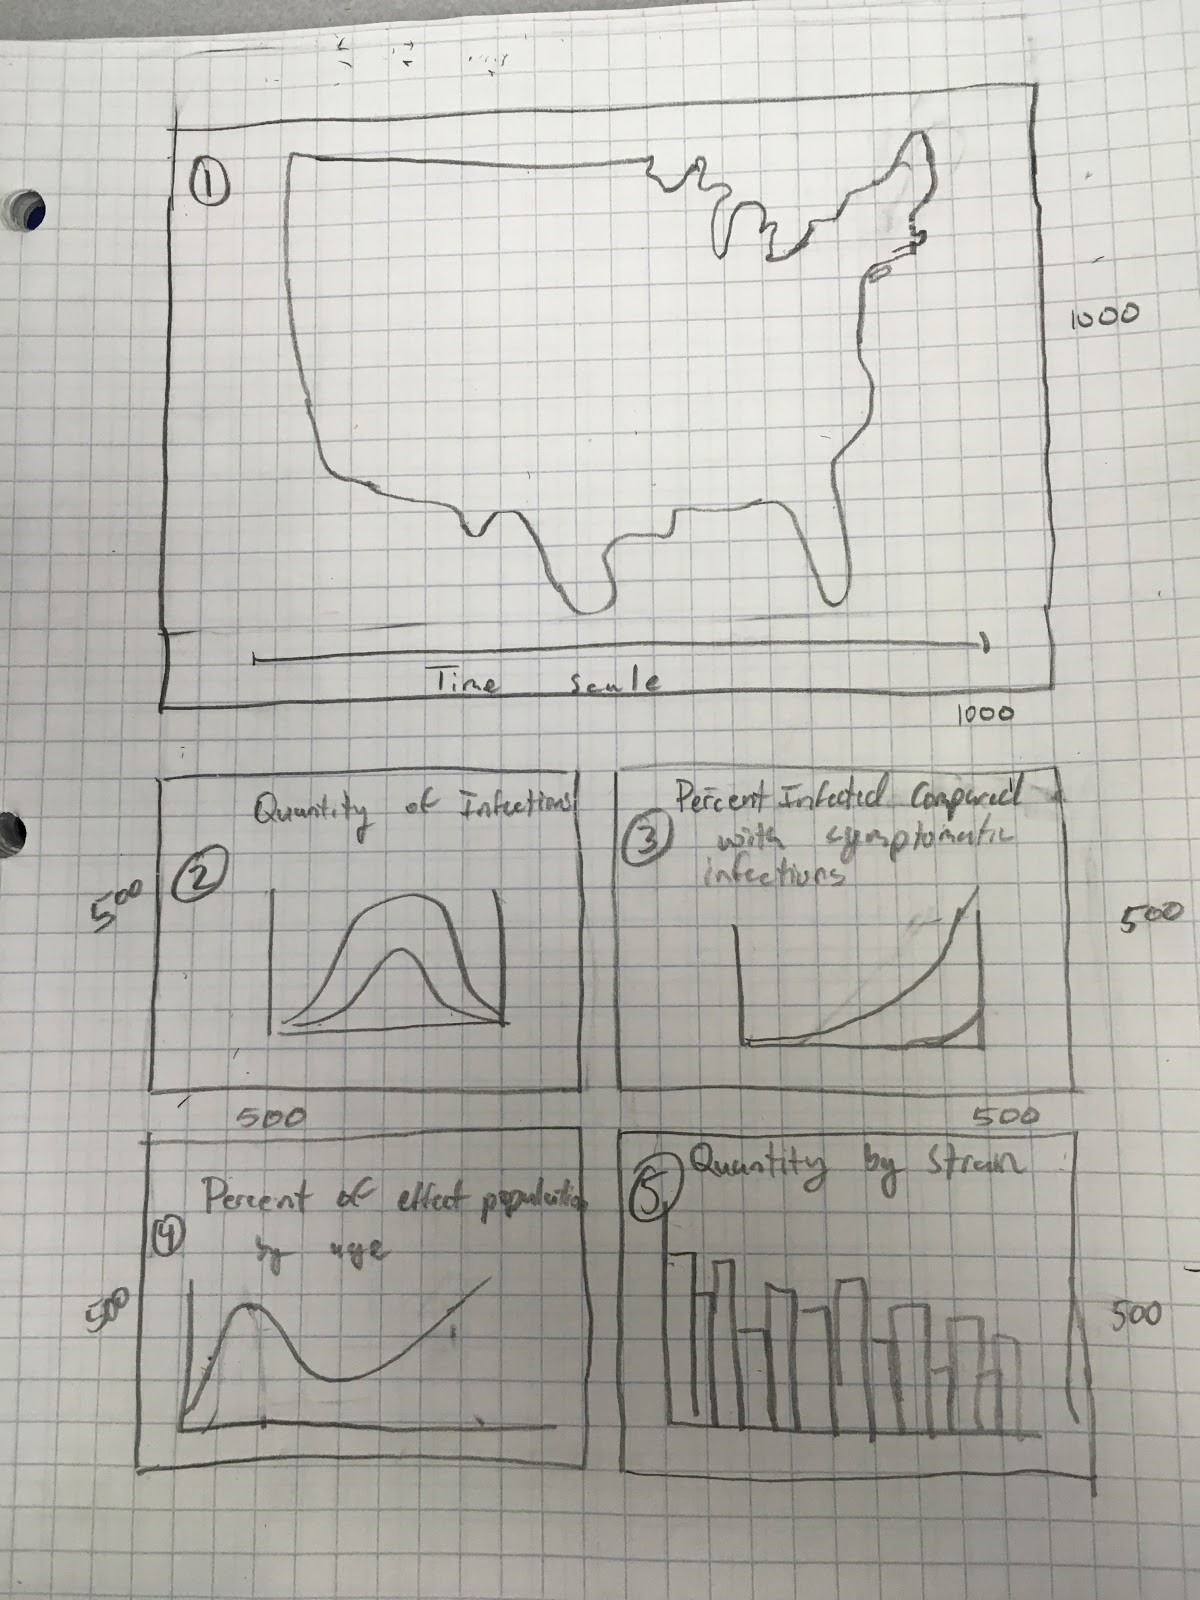 1
1000
Time scale
1000
Quantity of Infections
2
500
500
Percent Infected Compared
3 with symptomatic
infections
500
500
Percent of effect population
4 by age
500
5 Quantity by Strain
500